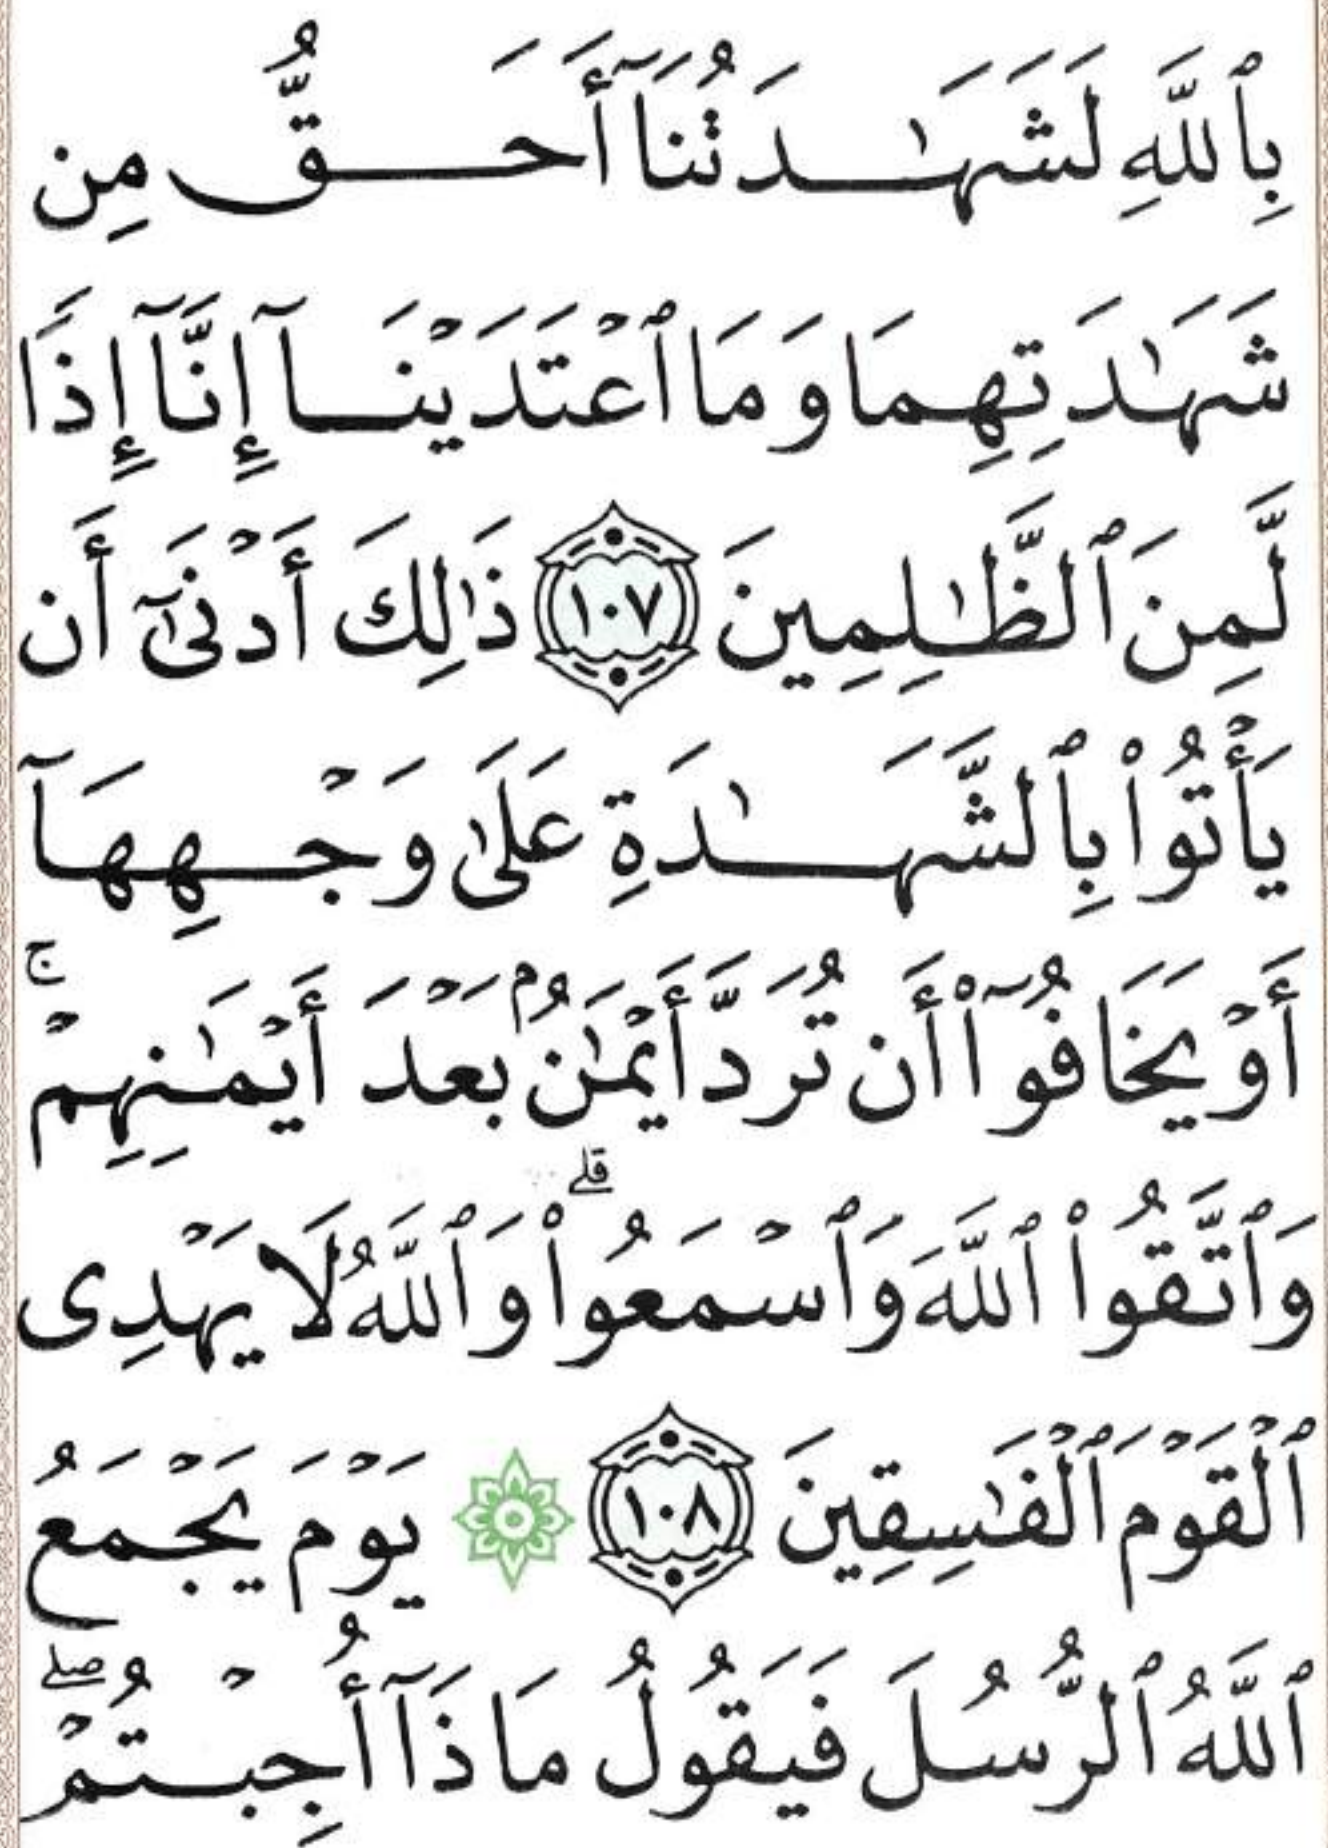 بِٱللَّهِ لَشَهَـٰدَتُنَآ أَحَقُّ مِن
شَهَـٰدَتِهِمَا وَمَا ٱعْتَدَيْنَآ إِنَّآ إِذًا
لَّمِنَ ٱلظَّـٰلِمِينَ ١٠٧ ذَٰلِكَ أَدْنَىٰٓ أَن
يَأْتُوا۟ بِٱلشَّهَـٰدَةِ عَلَىٰ وَجْهِهَآ
أَوْ يَخَافُوٓا۟ أَن تُرَدَّ أَيْمَـٰنٌۢ بَعْدَ أَيْمَـٰنِهِمْ ۚ
وَٱتَّقُوا۟ ٱللَّهَ وَٱسْمَعُوا۟ ۗ وَٱللَّهُ لَا يَهْدِى
ٱلْقَوْمَ ٱلْفَـٰسِقِينَ ١٠٨ يَوْمَ يَجْمَعُ
ٱللَّهُ ٱلرُّسُلَ فَيَقُولُ مَاذَآ أُجِبْتُمْ ۖ